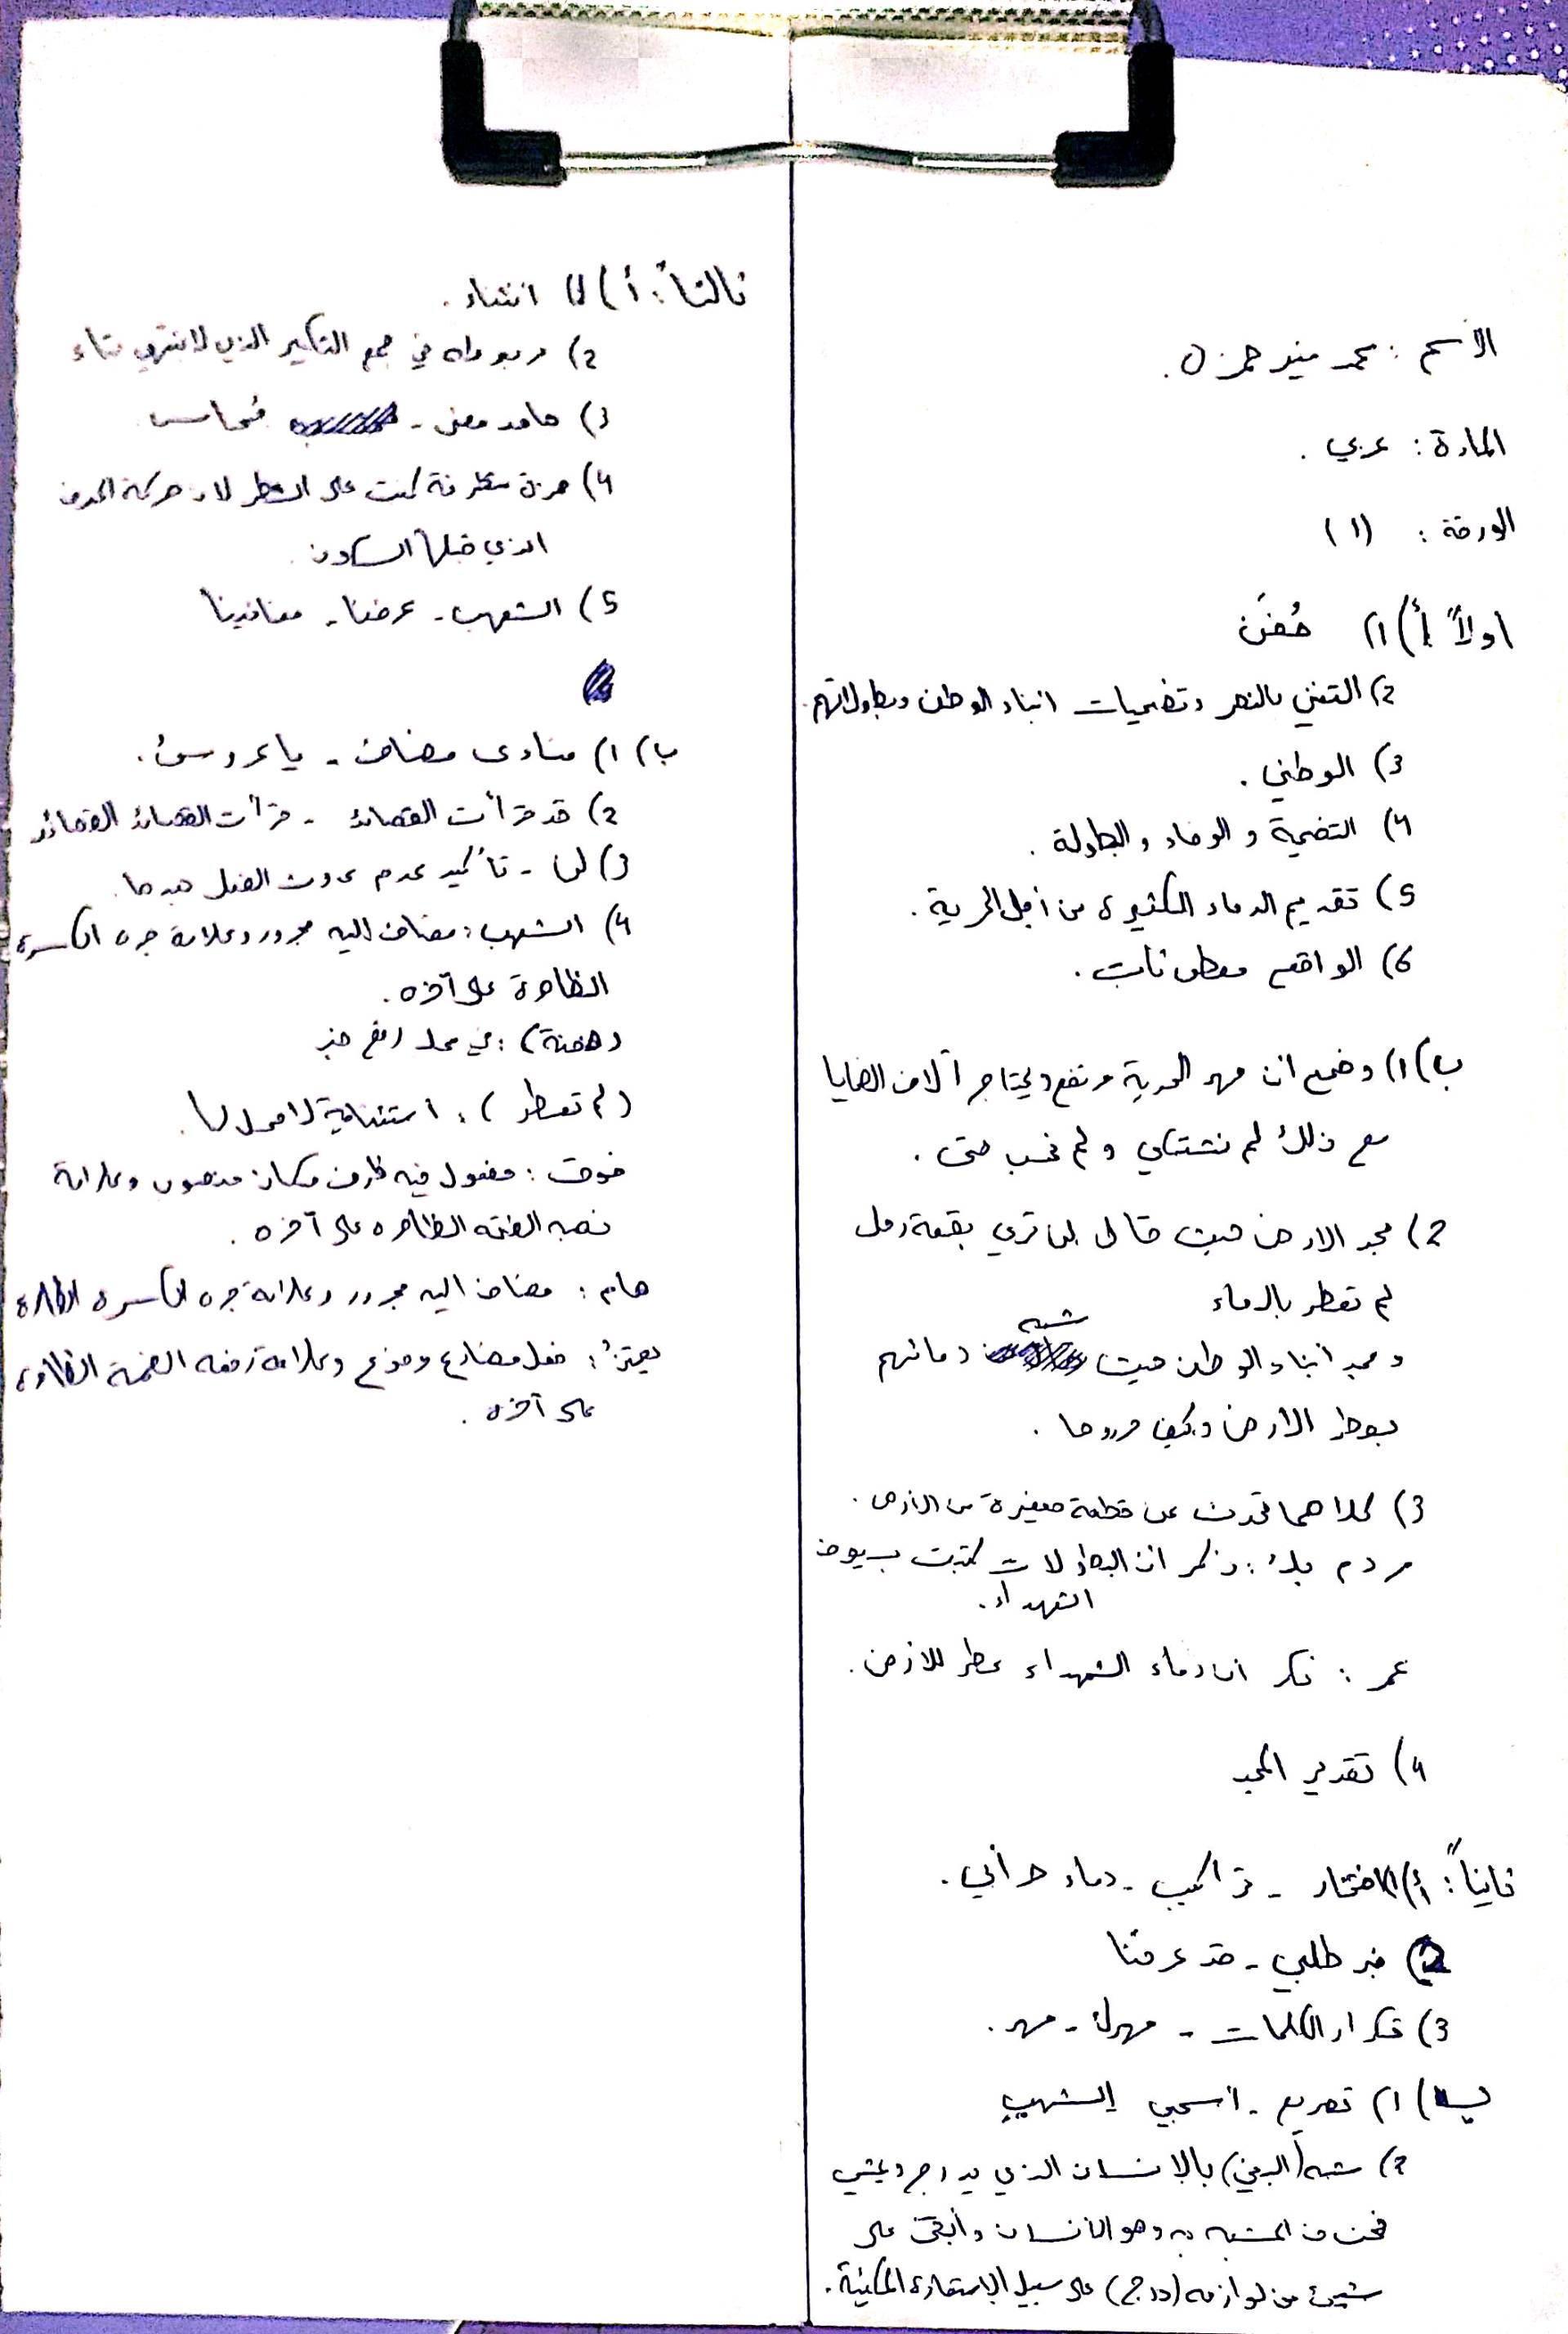 الاسم : محمد منير حمزة .
المادة : عربي .
الورقة : (١)
اولاً أ) 1) حُفَن
2) التغني بالنصر وتضحيات ابناء الوطن وبطولاتهم .
3) الوطني .
4) التضحية و الوفاء و البطولة .
5) تقديم الدماء الكثيرة من أجل الحرية .
6) الواقع معطى ثابت .
ب) 1) وضح ان مهر الحرية مرتفع ويحتاج آلاف الضحايا
مع ذلك لم نشتكي و لم نحسب حتى .
2) مجد الارض حيث قال لن تري بقعة رمل
لم تعطر بالدماء
و مجد ابناء الوطن حيث شبه دمائهم
بعطر الأرض وكيف حرروها .
3) كلاهما تحدث عن قطعة صغيرة من الارض .
مردم بك : ذكر ان البطولات كتبت بسيوف
الشهداء .
عمر : ذكر ان دماء الشهداء عطر للارض .
4) تقدير المجد
ثانياً : أ) 1) افتخار - تراكيب - دماء حر أبي .
2) خبر طلبي - قد عرفنا
3) تكرار الكلمات - مهرك - مهر .
ب) 1) تصريع - اسحبي الشهبِ
2) شبه (البغي) بالإنسان الذي يدرج ويمشي
فحذف المشبه به وهو الانسان وأبقى على
شيئ من لوازمه (درج) على سبيل الاستعارة المكنية .
ثالثاً : أ) 1) انثناء .
2) مربوطه في جمع التكسير الذي لا ينتهي بتاء
3) جامد معنى -
4) همزة متطرفة كتبت على السطر لان حركة الحرف
الذي قبلها السكون .
5) الشهب - عرفنا - معانينا
ب) 1) منادى مضاف - يا عروسَ .
2) قد قرأت القصائد - قرأت القصائد القصائد
3) لن - تأكيد عدم حدوث الفعل بعدها .
4) الشهب : مضاف اليه مجرور وعلامة جره الكسرة
الظاهرة على آخره .
( حفنة ) : في محل رفع خبر
( لم تعطر ) : استئنافية لا محل لها .
فوق : مفعول فيه ظرف مكان منصوب وعلامة
نصبه الفتحه الظاهره على آخره .
هام : مضاف اليه مجرور وعلامة جره الكسره الظاهرة
يعتز : فعل مضارع مرفوع وعلامة رفعه الضمة الظاهرة
على آخره .